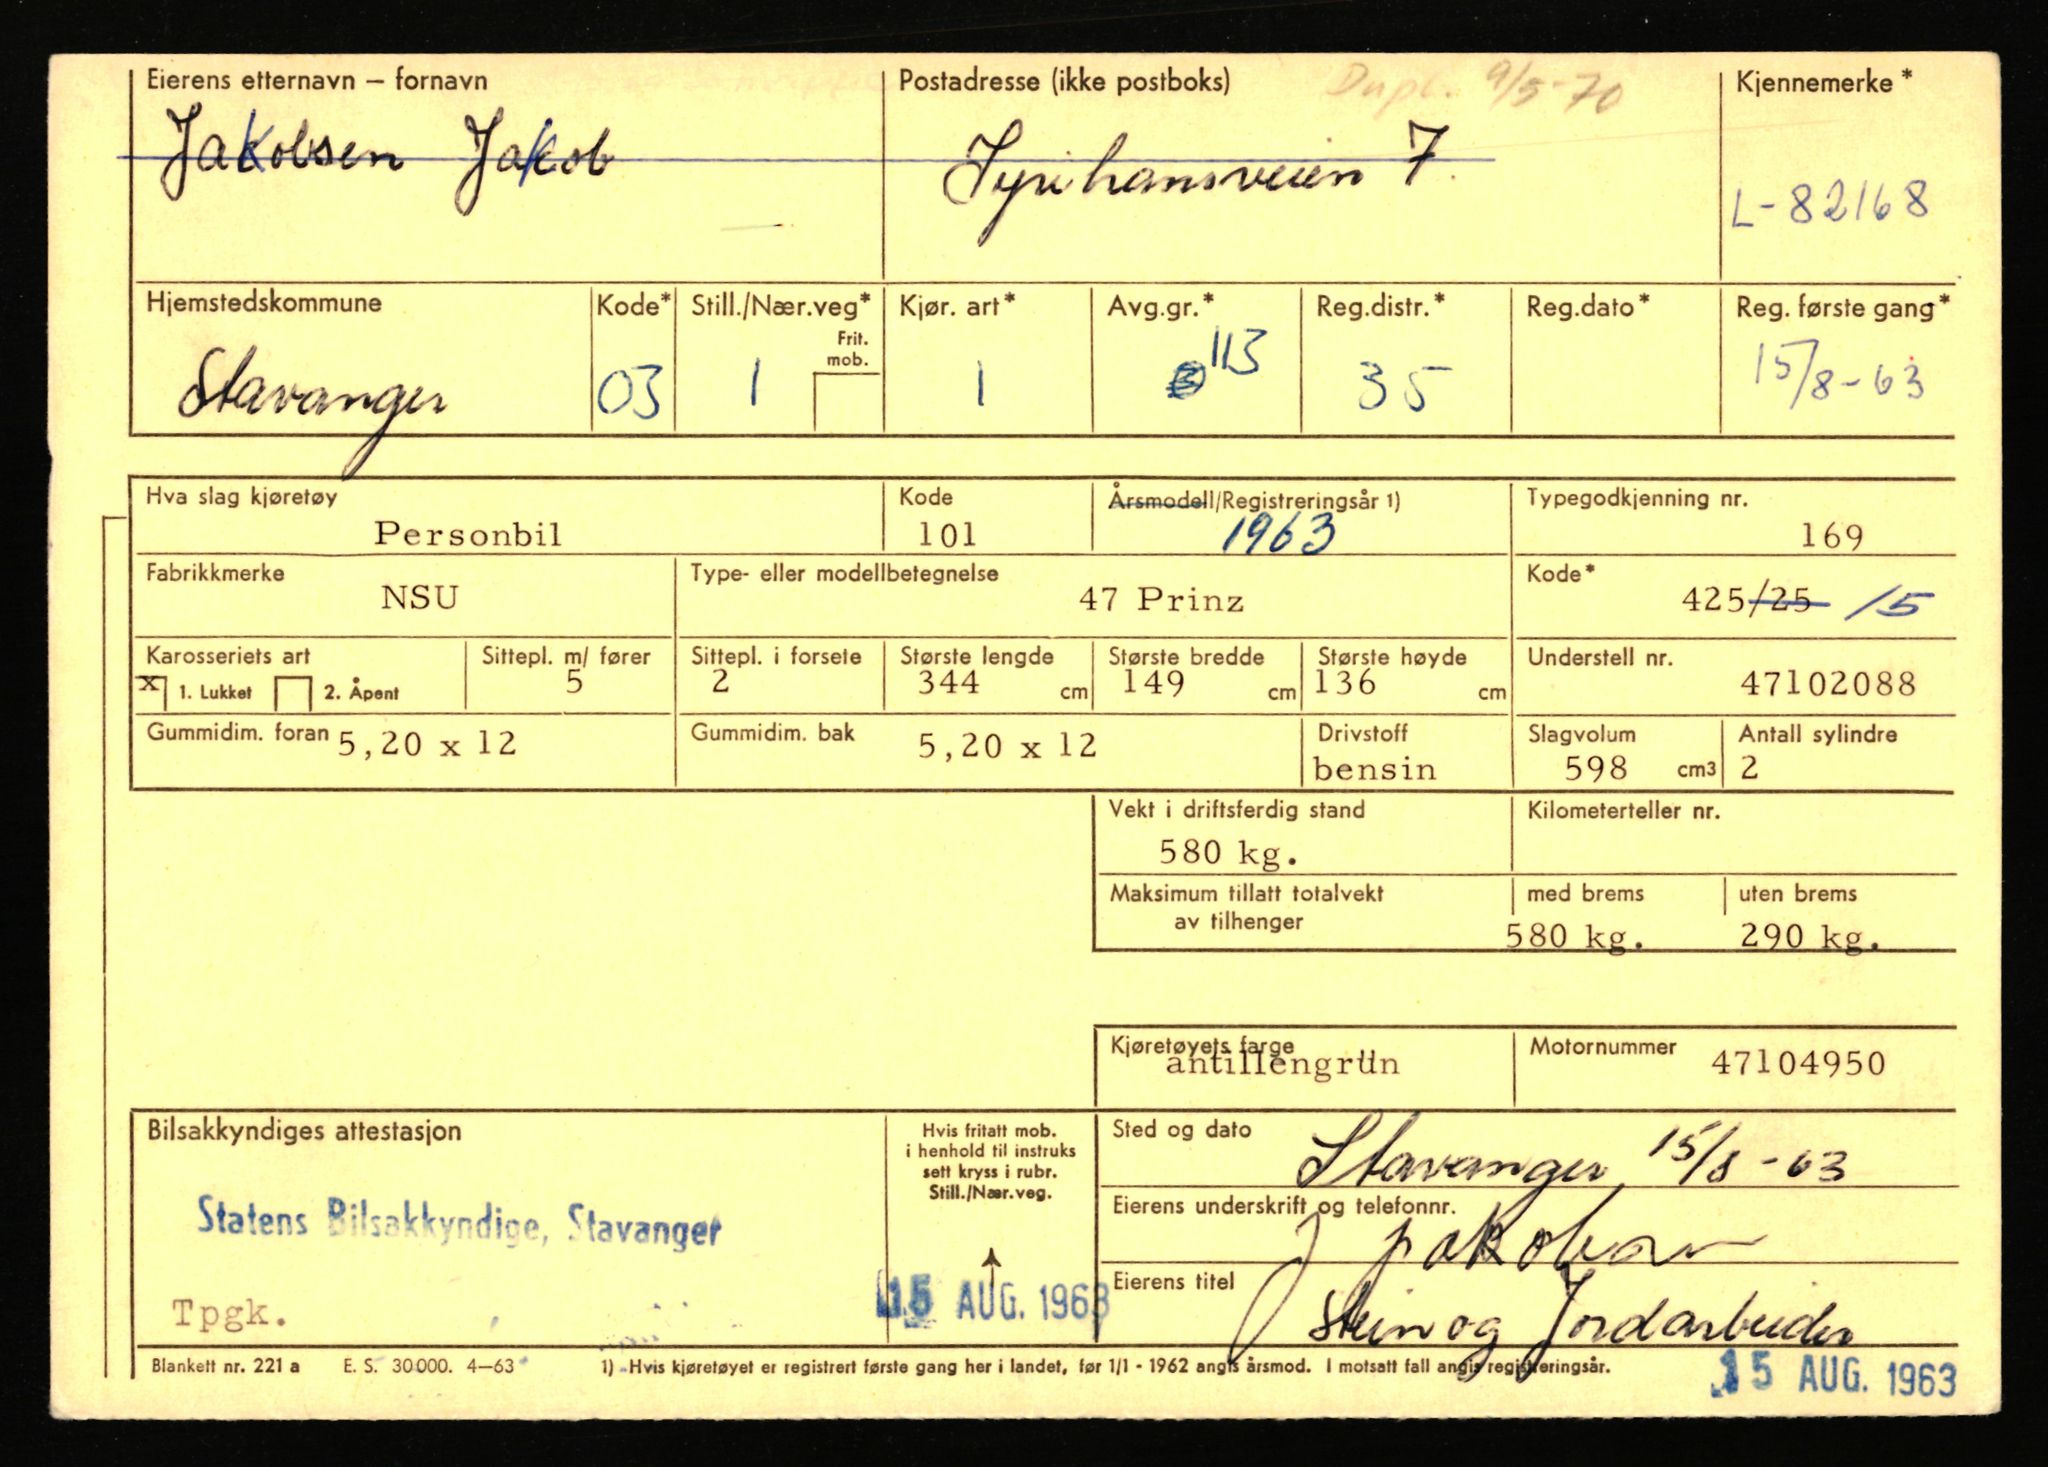 Eierens etternavn – fornavn Postadresse (ikke postboks) Dupl. 9/5-70 Kjennemerke*
Jakobsen Jakob Tyrihansveien 7
L-82168
Hjemstedskommune Kode* Still./Nær.veg* Kjør. art* Avg.gr.* Reg.distr.* Reg.dato* Reg. første gang*
Frit. mob.
Stavanger 03 1 1 113 35 15/8-63
Hva slag kjøretøy Kode Årsmodell/Registreringsår 1) Typegodkjenning nr.
Personbil 101 1963 169
Fabrikkmerke Type- eller modellbetegnelse Kode*
NSU 47 Prinz 425/25 /5
Karosseriets art Sittepl. m/ fører Sittepl. i forsete Største lengde Største bredde Største høyde Understell nr.
x 1. Lukket 2. Åpent 5 2 344 cm 149 cm 136 cm 47102088
Gummidim. foran 5,20 x 12 Gummidim. bak 5,20 x 12 Drivstoff Slagvolum Antall sylindre
bensin 598 cm3 2
Vekt i driftsferdig stand Kilometerteller nr.
580 kg.
Maksimum tillatt totalvekt med brems uten brems
av tilhenger 580 kg. 290 kg.
Kjøretøyets farge Motornummer
antillengrün 47104950
Bilsakkyndiges attestasjon
Hvis fritatt mob.
i henhold til instruks
sett kryss i rubr.
Still./Nær.veg.
Sted og dato
Stavanger 15/8-63
Statens Bilsakkyndige, Stavanger
Eierens underskrift og telefonnr.
J Jakobsen
15 AUG. 1963
Eierens titel
Stein og Jordarbeider
Tpgk.
Blankett nr. 221 a E. S. 30000. 4–63 1) Hvis kjøretøyet er registrert første gang her i landet, før 1/1 - 1962 angis årsmod. I motsatt fall angis registreringsår.
15 AUG. 1963